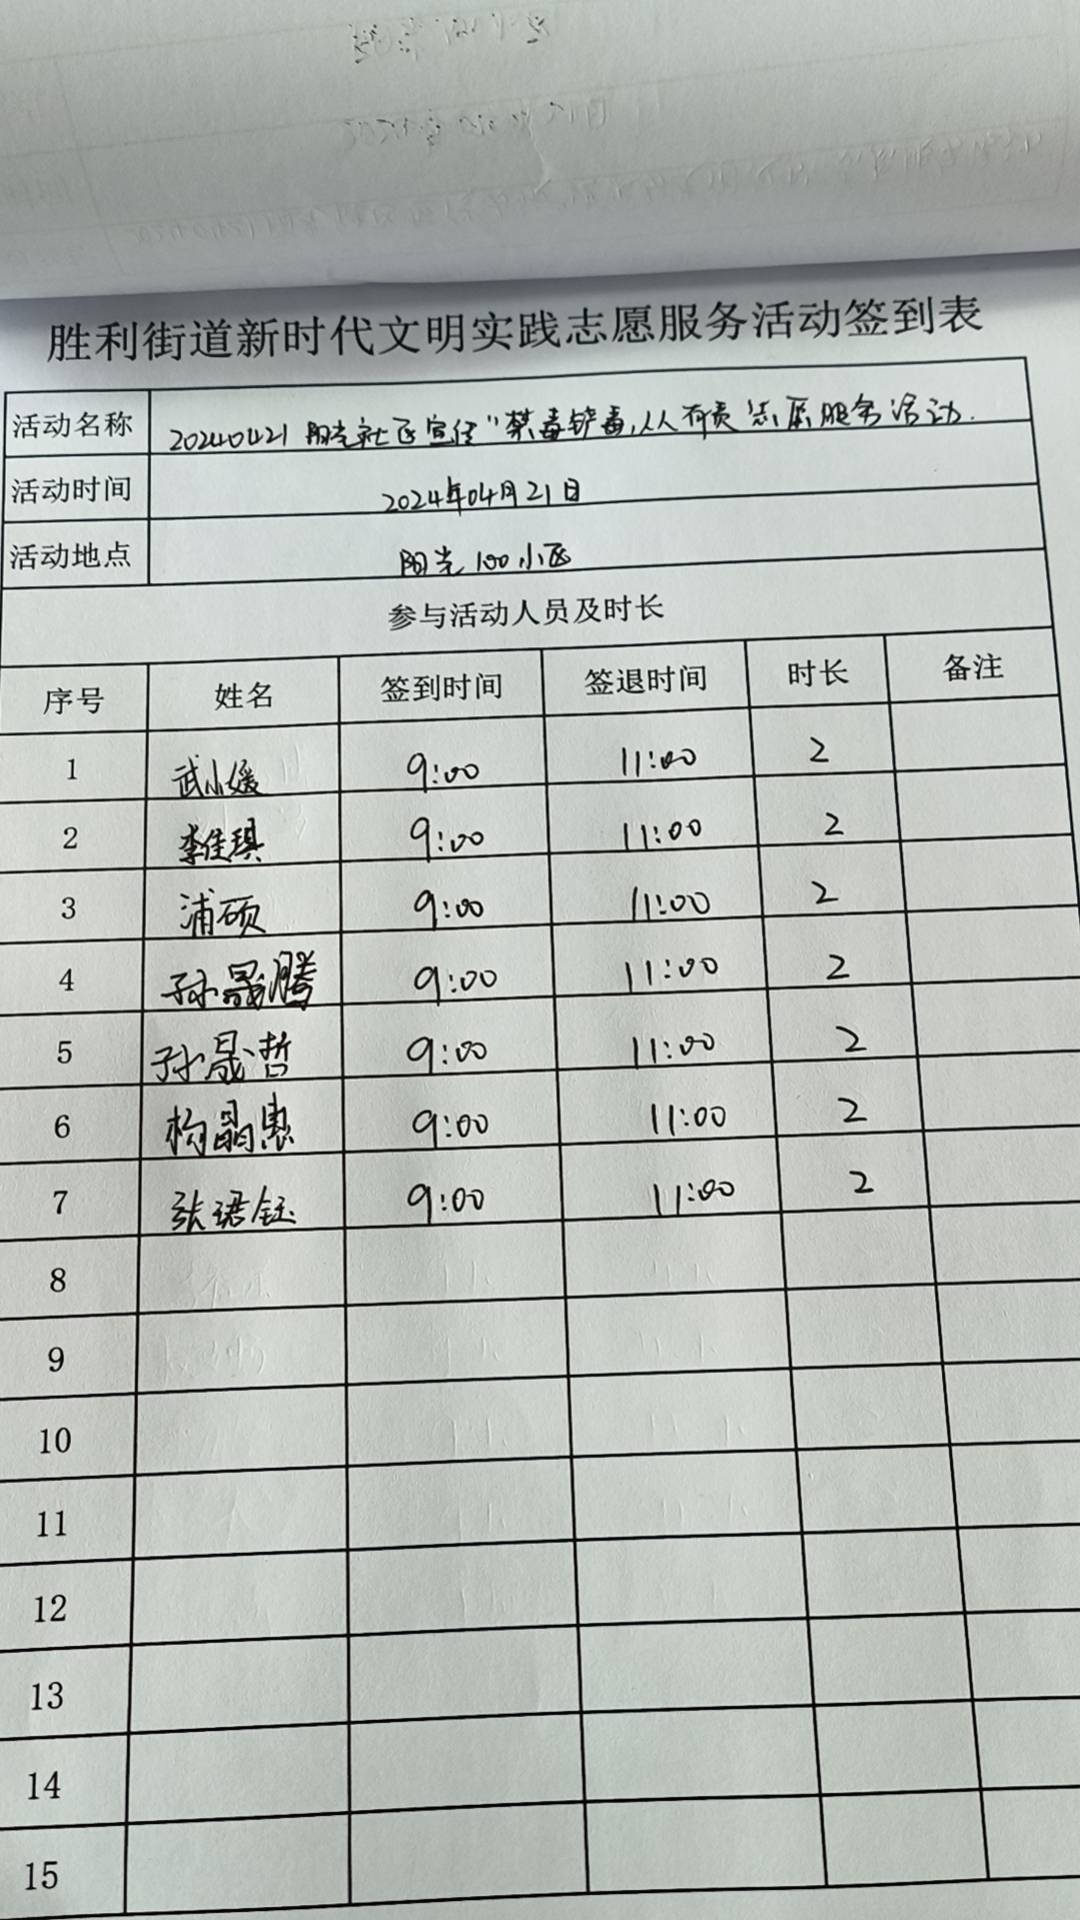 胜利街道新时代文明实践志愿服务活动签到表
活动名称 20240421 阳光社区宣传"禁毒铲毒,人人有责志愿服务活动.
活动时间 2024年04月21日
活动地点 阳光100小区
参与活动人员及时长
序号 姓名 签到时间 签退时间 时长 备注
1 武小媛 9:00 11:00 2
2 李佳琪 9:00 11:00 2
3 浦硕 9:00 11:00 2
4 孙晟腾 9:00 11:00 2
5 孙晟哲 9:00 11:00 2
6 杨晶惠 9:00 11:00 2
7 张珺钰 9:00 11:00 2
8
9
10
11
12
13
14
15